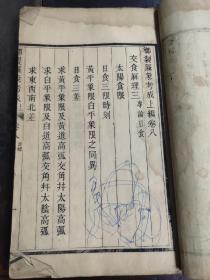 御製厯象考成上編卷八
交食厯理三專論日食
太陽食限
日食三限時刻
黃平象限白平象限之同異
日食三差
求黃平象限及黃道高弧交角并太陽高弧
求白平象限及白道高弧交角并太陰高弧
求東西南北差